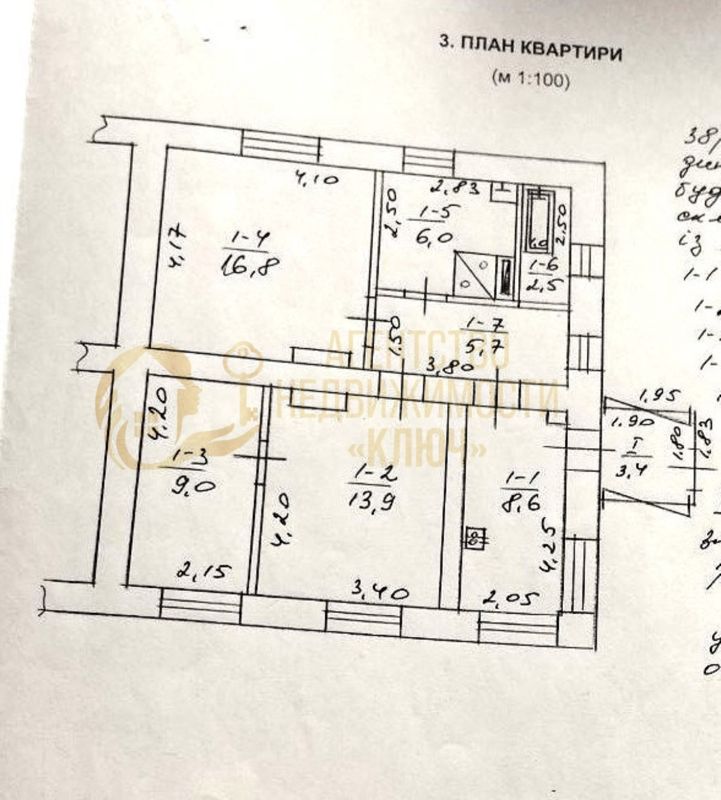 3. ПЛАН КВАРТИРИ
(м 1:100)
4,10
4,17
1-4
16,8
2,83
2,50
1-5
6,0
2.50
1-6
2,5
1-7
5,7
1.50
3,80
АГЕНТСТВО
НЕДВИЖИМОСТИ
«КЛЮЧ»
4,20
1-3
9,0
2,15
4,20
1-2
13,9
3,40
1-1
8,6
4,25
2,05
1,95
1,90
I
3,4
1,80
1,83
із
1-1